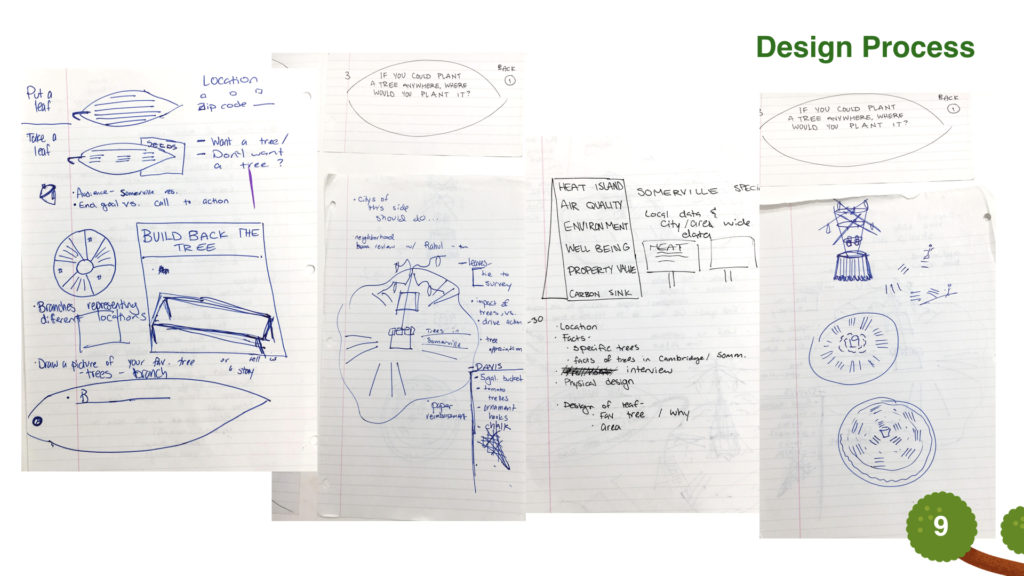 Design Process
Put a
leaf
Location
Zip code
Take a
leaf
SEEDS
- Want a tree/
- Don't want
a tree?
• Audience - Somerville res.
• End goal vs. call to action
BUILD BACK THE
TREE
• Branches representing
different locations
• Draw a picture of your fav. tree or tell us
a story
- trees - branch
• B
3
BACK
1
IF YOU COULD PLANT
A TREE ANYWHERE, WHERE
WOULD YOU PLANT IT?
• Citys of
this side
should do...
neighborhood
review w/ Rahul
- leaves
survey
• impact of
trees vs.
• drive action
• tree
appreciation
Trees in
Somerville
- DAVIS
• Sugar bucket
• tomato
trellis
• ornament
hooks
• chalk
• paper
reimbursement
HEAT ISLAND
AIR QUALITY
ENVIRONMENT
WELL BEING
PROPERTY VALUE
CARBON SINK
SOMERVILLE SPECI
Local data &
City/area wide
data
HEAT
-30
• Location
• Facts -
• specific trees
• facts of trees in Cambridge/Somm.
interview
• Physical design
• Design of leaf -
• fav tree / why
• area
BACK
1
3
IF YOU COULD PLANT
A TREE ANYWHERE, WHERE
WOULD YOU PLANT IT?
9